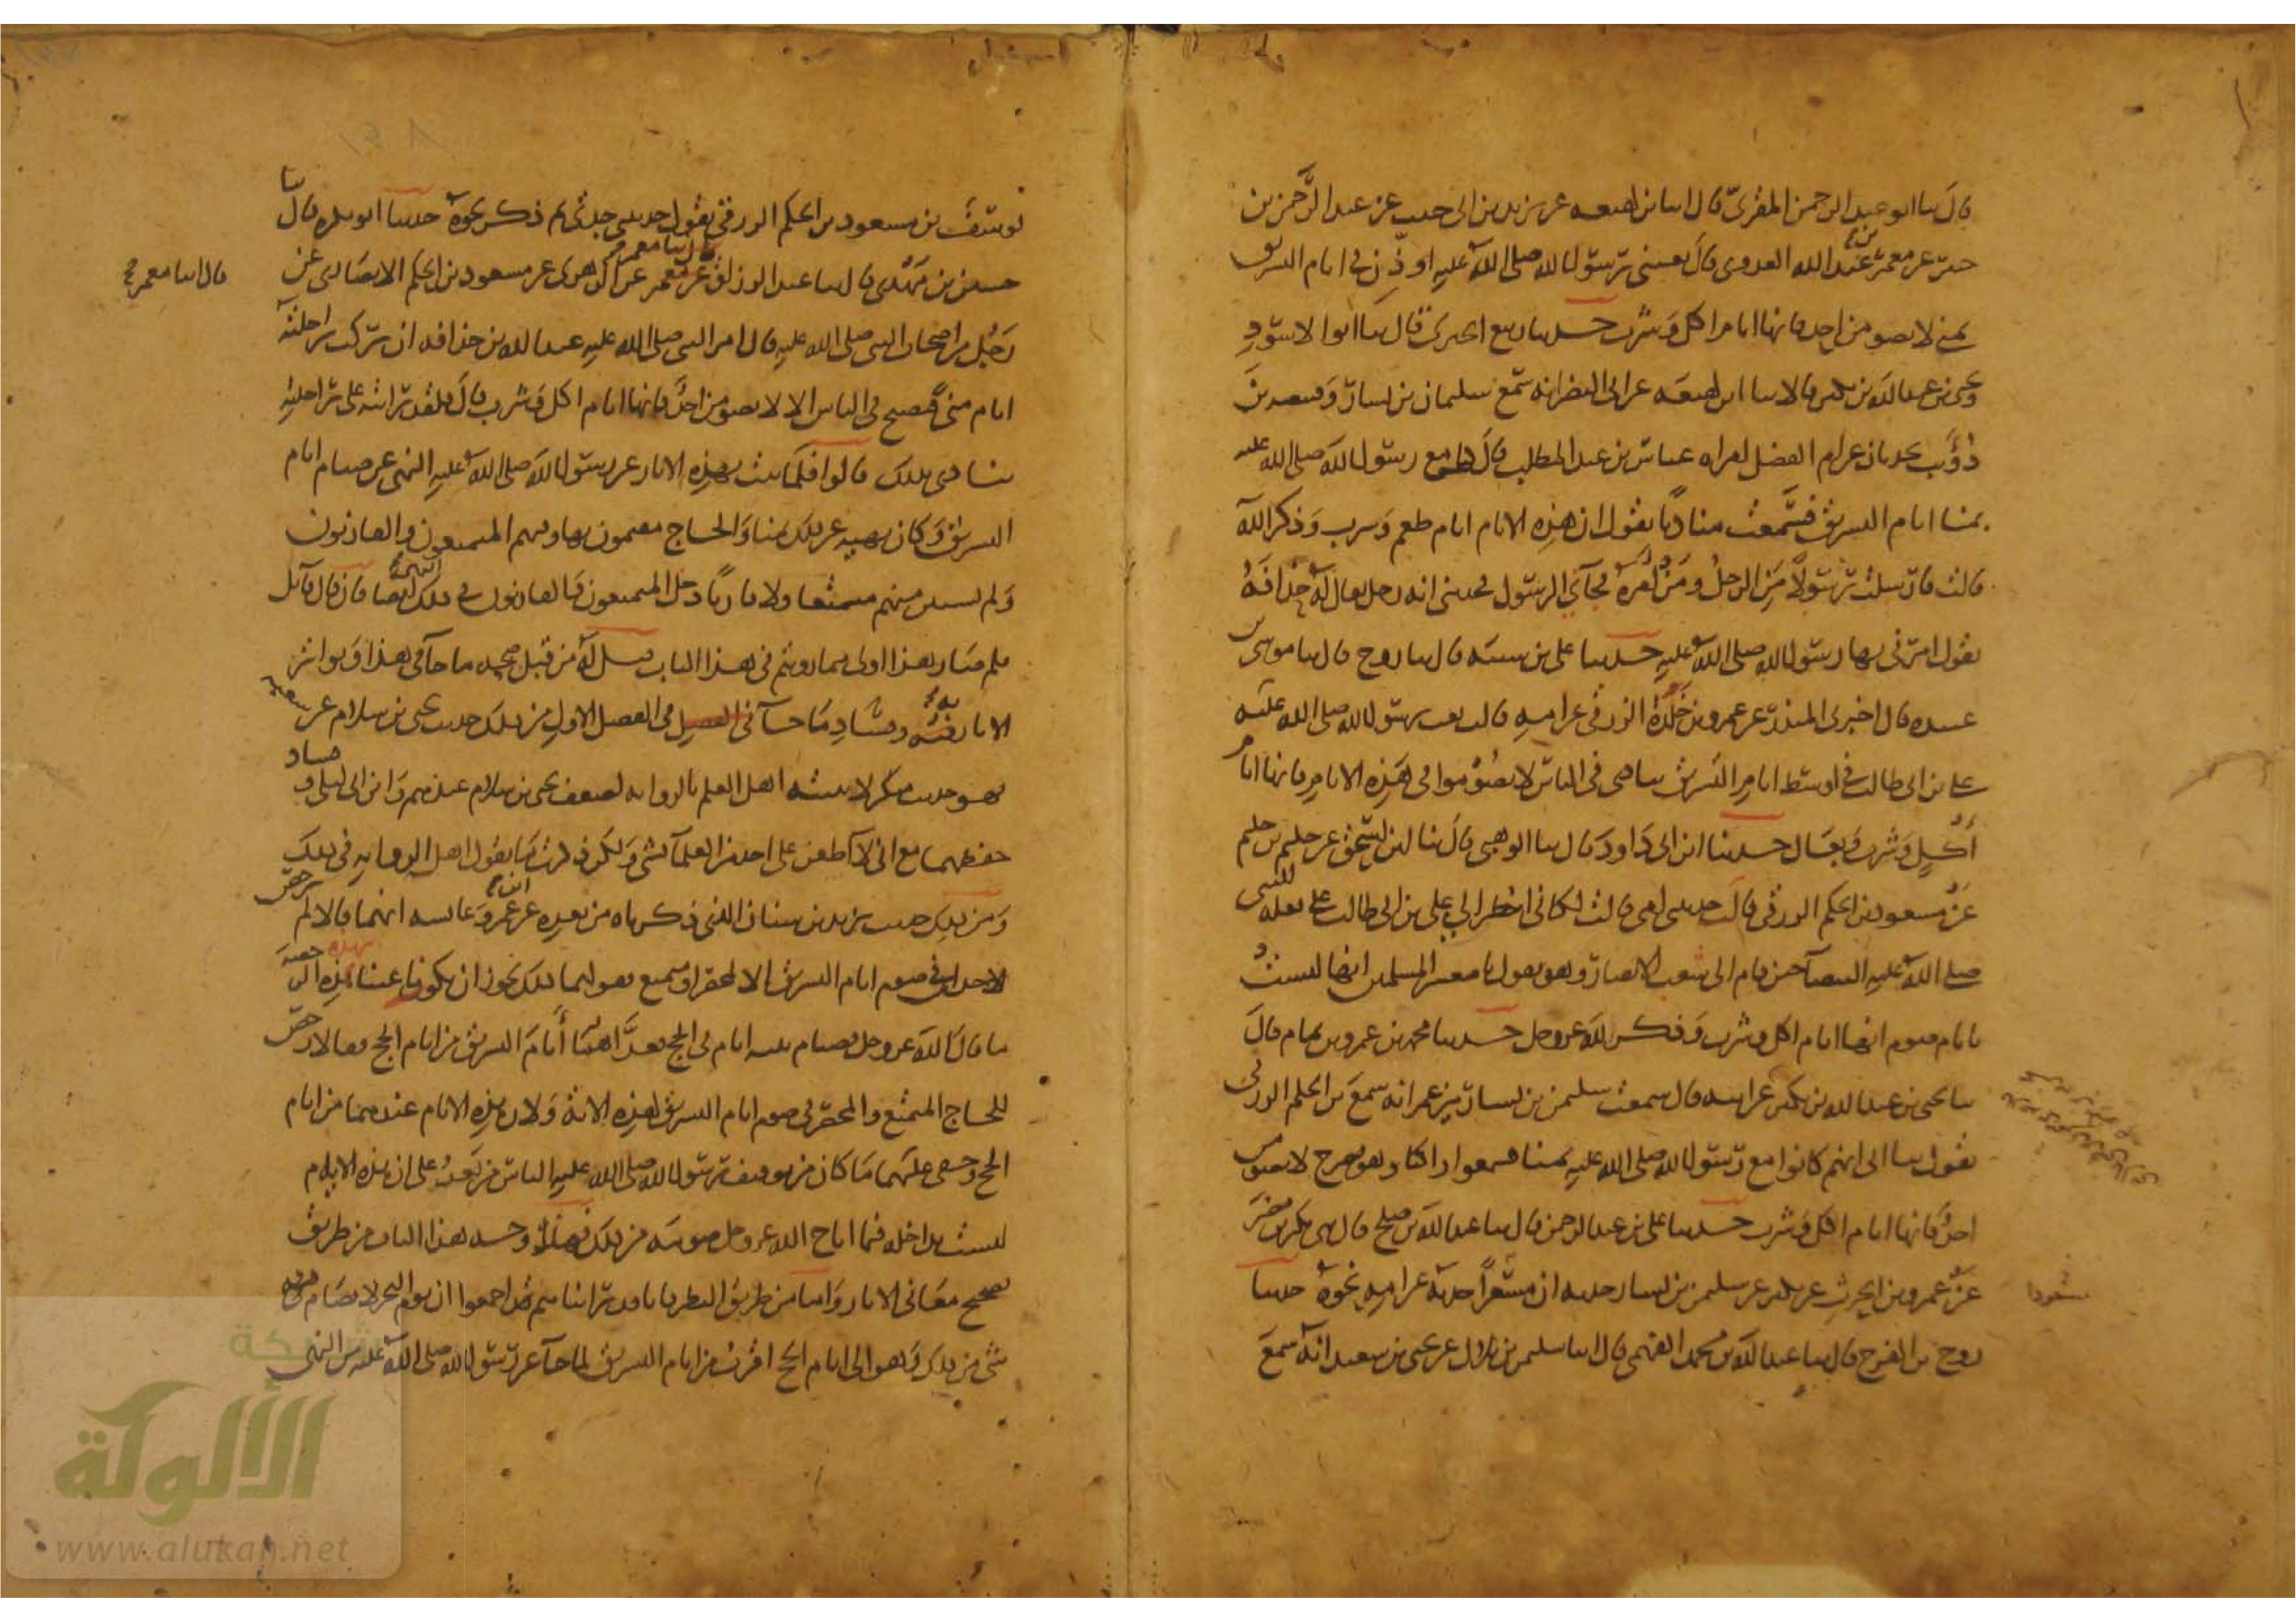 قال ثنا ابو عبد الرحمن المقرئ قال انا ابن لهيعة عن يزيد بن ابي حبيب عن عبد الرحمن بن
عن معمر بن عبد الله العدوي قال بعثني رسول الله صلى الله عليه اوذن في ايام التشريق
بمنى لا يصومن احد فانها ايام اكل وشرب حدثنا ربيع الجيزي قال ثنا ابو الاسود
ويحيى بن عبد الله بن بكير قالا ثنا ابن لهيعة عن ابي النضر انه سمع سليمان بن يسار وقبيصة بن
ذؤيب يحدثان عن ام الفضل امراة عباس بن عبد المطلب قال مع رسول الله صلى الله عليه
بمنا ايام التشريق فسمعت مناديا يقول ان هذه الايام ايام طعم وشرب وذكر الله
قالت فارسلت رسولا من الرجل ومن امره فجآني الرسول فحدثني انه رجل يقال له حذافة
يقول امرني بها رسول الله صلى الله عليه حدثنا علي بن شيبة قال ثنا روح قال ثنا موسى بن
عبيدة قال اخبرني المنذر عن عمرو بن خلدة الزرقي عن امه قالت بعث رسول الله صلى الله عليه
علي بن ابي طالب في اوسط ايام التشريق ينادي في الناس لا تصوموا في هذه الايام فانها ايام
أكل وشرب وبعال حدثنا ابن ابي داود قال ثنا الوهبي قال ثنا ابن اسحق عن حكيم بن حكيم
عن مسعود بن الحكم الزرقي قال حدثتني امي قالت لكاني انظر الي علي بن ابي طالب على بغلة النبي
صلى الله عليه البيضآ حين قام الى شعب الانصار وهو يقول يا معشر المسلمين انها ليست
بايام صوم انها ايام اكل وشرب وذكر لله عز وجل حدثنا محمد بن عمرو بن تمام قال
ثنا يحيى بن عبد الله بن بكير عن ابيه قال سمعت سليمن بن يسار يزعم انه سمع بن الحكم الزرقي
يقول ثنا ابي انهم كانوا مع رسول الله صلى الله عليه بمنا فسمعوا راكبا وهو يصرخ لا يصومن
احد فانها ايام اكل وشرب حدثنا علي بن عبد الرحمن قال ثنا عبد الله بن صالح قال ثني بكر بن مضر
عن عمرو بن الحرث عن بكير عن سليمن بن يسار حدثه ان مسعودا حدثه عن امه نحوه حدثنا
مسعودا
روح بن الفرج قال ثنا عبد الله بن محمد الفهمي قال انا سليمن بن بلال عن يحيى بن سعيد انه سمع
يوسف بن مسعود بن الحكم الزرقي يقول حدثتني جدتي ثم ذكر نحوه حدثنا ابو بكرة قال ثنا
حسين بن مهدي قال ثنا عبد الرزاق عن معمر عن الزهري عن مسعود بن الحكم الانصاري عن
قال انا معمر
رجل من اصحاب النبي صلى الله عليه قال امر النبي صلى الله عليه عبد الله بن حذافة ان يركب راحلته
ايام منى فيصيح في الناس الا لا يصومن احد فانها ايام اكل وشرب قال فلقد رايته على راحلته
ينادي بذلك قالوا فلما ثبت بهذه الاثار عن رسول الله صلى الله عليه النهي عن صيام ايام
التشريق وكان نهيه عن ذلك بمنا والحاج مقيمون بها وفيهم المتمتعون والقارنون
ولم يستثن منهم متمتعا ولا قارنا دخل المتمتعون والقارنون في ذلك النهي ايضا فان قال قائل
فلم صار هذا اولى مما رويتم في هذا الباب قيل له من قبل صحة ما جآ في هذا وتواتر
الاثار فيه وفساد ما جآ في الفصل الاول من ذلك حديث يحيى بن سلام عن شعبة
فهو حديث منكر لا يثبته اهل العلم بالرواية لضعف يحيى بن سلام عندهم وابن ابي ليلى وفساد
حفظهما مع اني لا اطعن على احد من العلمآ بشي ولكن ذكرت ما يقول اهل الرواية في ذلك
ومن ذلك حديث يزيد بن سنان الذي ذكرناه من بعده عن ابن عمر وعائشة انهما قالا لم يرخص
لاحد في صوم ايام التشريق الا لمحصر او متمتع فقولهما ذلك يجوز ان يكونا عنيا بهذه الرخصة
ما قال الله عز وجل فصيام ثلثة ايام في الحج فعدا ايام التشريق من ايام الحج فقالا رخص
للحاج المتمتع والمحصر في صوم ايام التشريق لهذه الاية ولان هذه الايام عندهما من ايام
الحج وخفي عليهما ما كان من توقيف رسول الله صلى الله عليه الناس من بعد على ان هذه الايام
ليست بداخلة فيما اباح الله عز وجل صومه من ذلك فهذا وجه هذا الباب من طريق
تصحيح معاني الاثار واما من طريق النظر فانا قد راينا هم قد اجمعوا ان يوم النحر لا يصام فيه
شي من ذلك وهو الى ايام الحج اقرب من ايام التشريق لما جآ عن رسول الله صلى الله عليه من النهي
شبكة
الألوكة
www.alukah.net